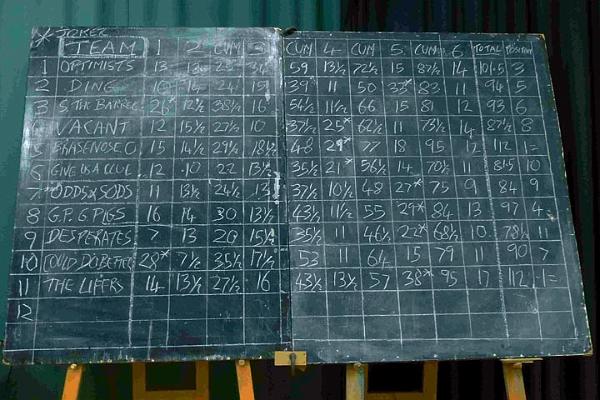 * JOKER
TEAM 1 2 CUM 3 CUM 4 CUM 5 CUM 6 TOTAL POSITION
1 OPTIMISTS 13 59 13½ 72½ 15 87½ 14 101.5 3
2 DING 14 24 15 39 11 50 33* 83 11 94 5
3 S THE BARREL 26* 12½ 38½ 16 54½ 11½ 66 15 81 12 93 6
VACANT 12 15½ 27½ 10 37½ 25* 62½ 11 73½ 14 87½ 8
ERASENOSE O 15 14½ 29½ 18½ 48 29* 77 18 95 17 112 1=
6 GIVE US A CLUE 12 10 22 13½ 35½ 21* 56½ 14 70½ 11 81.5 10
7 ODDS & SODS 11 13½ 24½ 13 37½ 10½ 48 27* 75 9 84 9
8 G.P.G PIGS 16 14 30 13½ 43½ 11½ 55 29* 84 13 97 4
9 DESPERATES 7 13 20 15½ 35½ 11 46½ 22* 68½ 10 78½ 11
10 COULD DO BETTER 28* 7½ 35½ 17½ 53 11 64 15 79 11 90 7
11 THE LIFERS 14 13½ 27½ 16 43½ 13½ 57 38* 95 17 112 1=
12